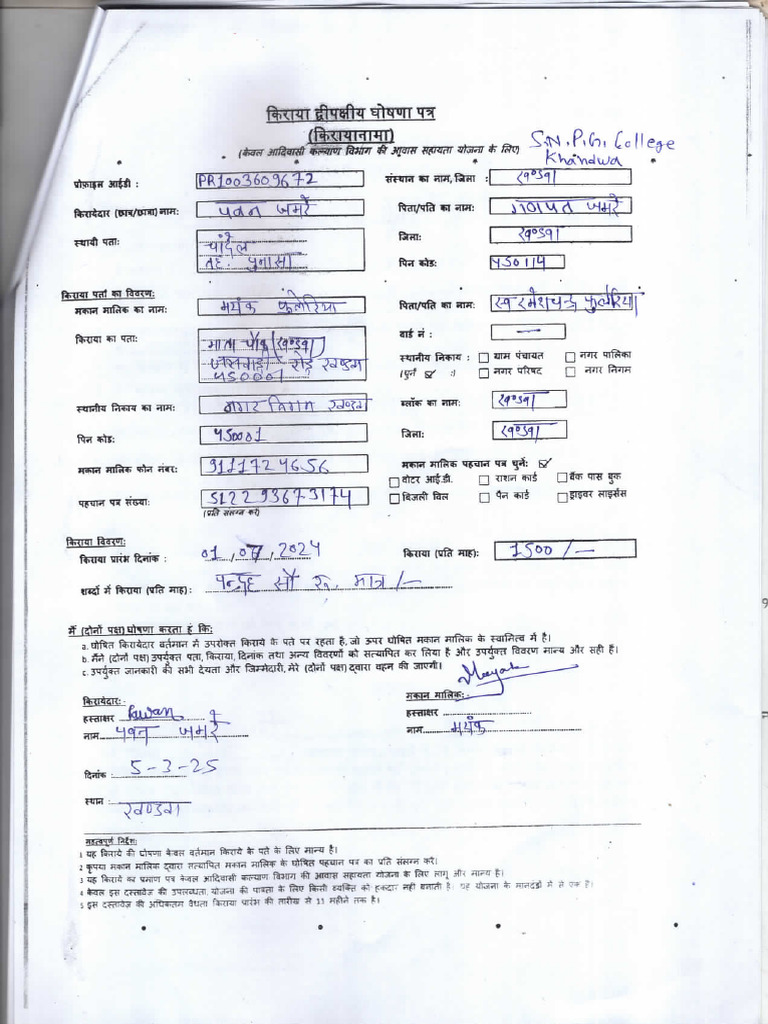 किराया द्वीपक्षीय घोषणा पत्र
(किरायानामा)
(केवल आदिवासी कल्याण विभाग की आवास सहायता योजना के लिए)
S.N. P.G. College
Khandwa
प्रोफ़ाइल आईडी : PR1003609672 संस्थान का नाम, जिला : खण्डवा
किरायेदार (छात्र/छात्रा) नाम: पवन जमरे पिता/पति का नाम: गणपत जमरे
स्थायी पता: चांदेल जिला: खण्डवा
तह. पुनासा पिन कोड: 450114
किराया पता का विवरण:
मकान मालिक का नाम: मयंक फुलेरिया पिता/पति का नाम: स्व रमेशचन्द्र फुलेरिया
किराया का पता: माता चौक खण्डवा वार्ड नं : —
जसवाड़ी रोड़ खण्डवा
450001
स्थानीय निकाय : ग्राम पंचायत नगर पालिका
(चुनें ☑ :) नगर परिषद नगर निगम
स्थानीय निकाय का नाम: नगर निगम खण्डवा ब्लॉक का नाम: खण्डवा
पिन कोड: 450001 जिला: खण्डवा
मकान मालिक फोन नंबर: 9111724656 मकान मालिक पहचान पत्र चुनें: ☑
वोटर आई.डी. राशन कार्ड बैंक पास बुक
पहचान पत्र संख्या: 512293673174 बिजली बिल पैन कार्ड ड्राइवर लाइसेंस
(प्रति संलग्न करें)
किराया विवरण:
किराया प्रारंभ दिनांक : 01,07,2024 किराया (प्रति माह): 1500/—
शब्दों में किराया (प्रति माह) : पन्द्रह सौ रू. मात्र/—
मैं (दोनों पक्ष) घोषणा करता हूं कि:
a. घोषित किरायेदार वर्तमान में उपरोक्त किराये के पते पर रहता है, जो ऊपर घोषित मकान मालिक के स्वामित्व में है।
b. मैंने (दोनों पक्ष) उपर्युक्त पता, किराया, दिनांक तथा अन्य विवरणों को सत्यापित कर लिया है और उपर्युक्त विवरण मान्य और सही हैं।
c. उपर्युक्त जानकारी की सभी देयता और जिम्मेदारी, मेरे (दोनों पक्ष) द्वारा वहन की जाएगी।
Mayank
किरायेदार:- मकान मालिक:-
हस्ताक्षर Pawan हस्ताक्षर
नाम पवन जमरे नाम मयंक
दिनांक : 5-3-25
स्थान : खण्डवा
महत्वपूर्ण निर्देश:
1 यह किराये की घोषणा केवल वर्तमान किराये के पते के लिए मान्य है।
2 कृपया मकान मालिक द्वारा सत्यापित मकान मालिक के घोषित पहचान पत्र का प्रति संलग्न करें।
3 यह किराये का प्रमाण पत्र केवल आदिवासी कल्याण विभाग की आवास सहायता योजना के लिए लागू और मान्य है।
4 केवल इस दस्तावेज की उपलब्धता, योजना की पात्रता के लिए किसी व्यक्ति को हकदार नहीं बनाती है। यह योजना के मानदंडों में से एक है।
5 इस दस्तावेज़ की अधिकतम वैधता किराया प्रारंभ की तारीख से 11 महीने तक है।